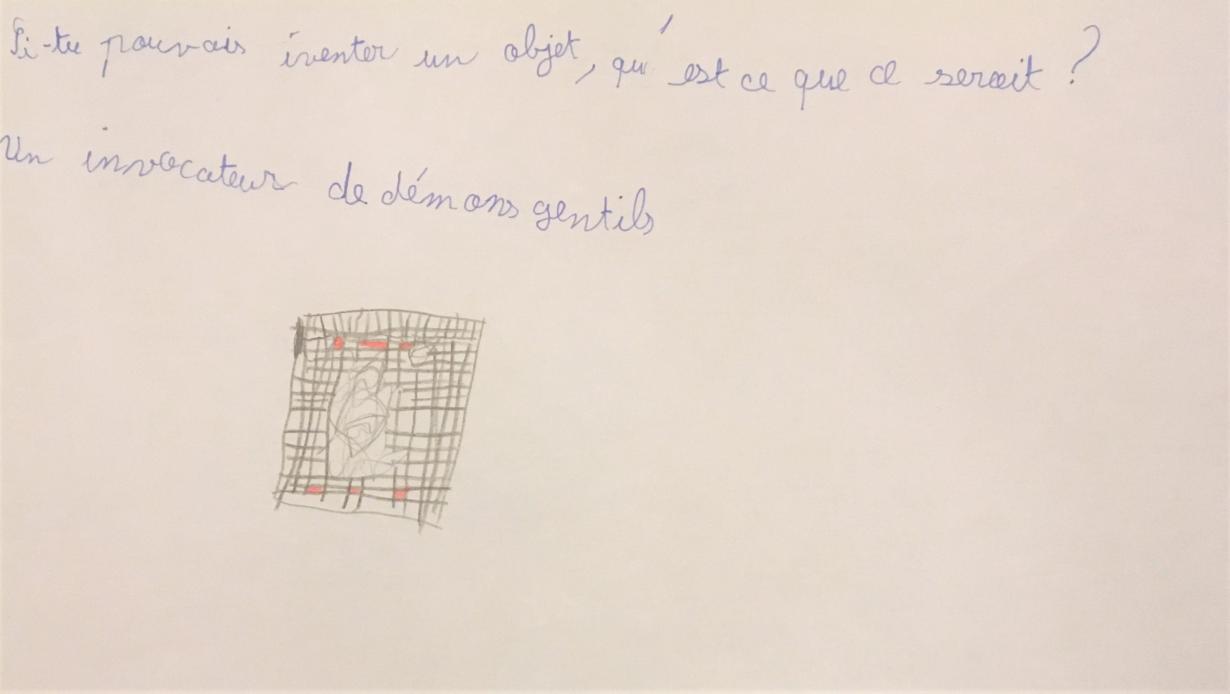 Si-tu pouvais iventer un objet, qu'est ce que ce serait ?
Un invocateur de démons gentils